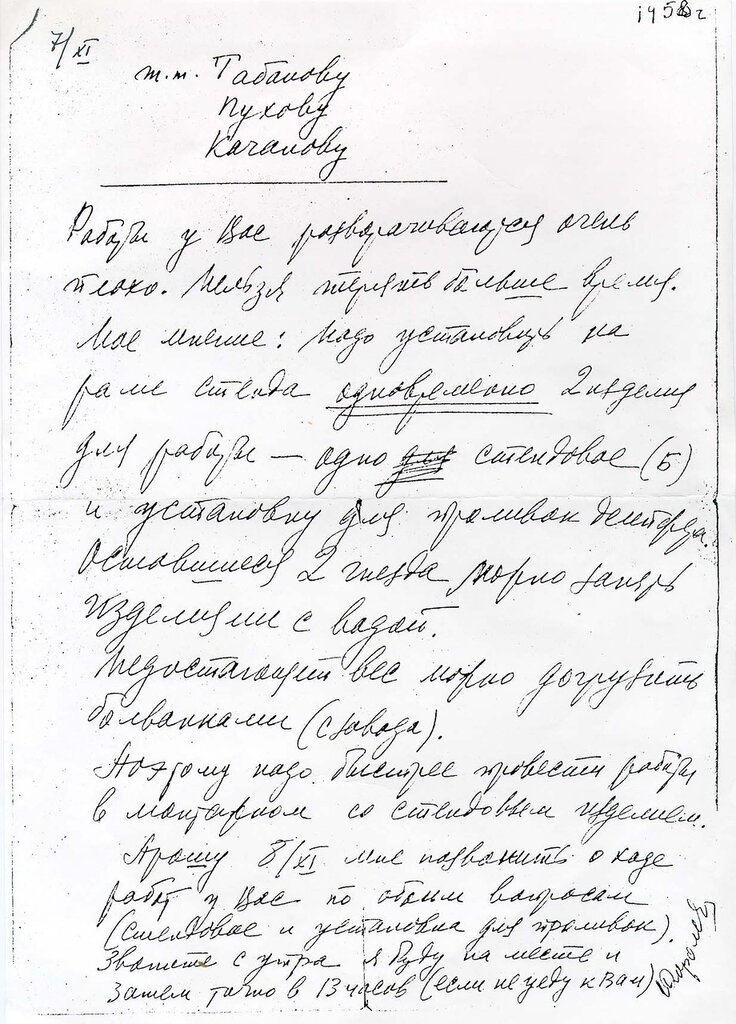 1958 г
7/XI
т.т. Табакову
Пухову
Качанову
Работы у Вас разворачиваются очень
плохо. Нельзя терять больше время.
Мое мнение: Надо установить на
раме стенда одновременно 2 изделия
для работы — одно для стендовое (Б)
и установку для проливок
Оставшиеся 2 гнезда можно занять
изделиями с водой.
Недостающий вес можно догрузить
болванками (с завода).
Поэтому надо быстрее провести работы
в монтажном со стендовым изделием.
Прошу 8/XI мне позвонить о ходе
работ у Вас по обоим вопросам
(стендовое и установка для проливок).
Звоните с утра я буду на месте и
затем точно в 13 часов (если не уеду к Вам)
Королев